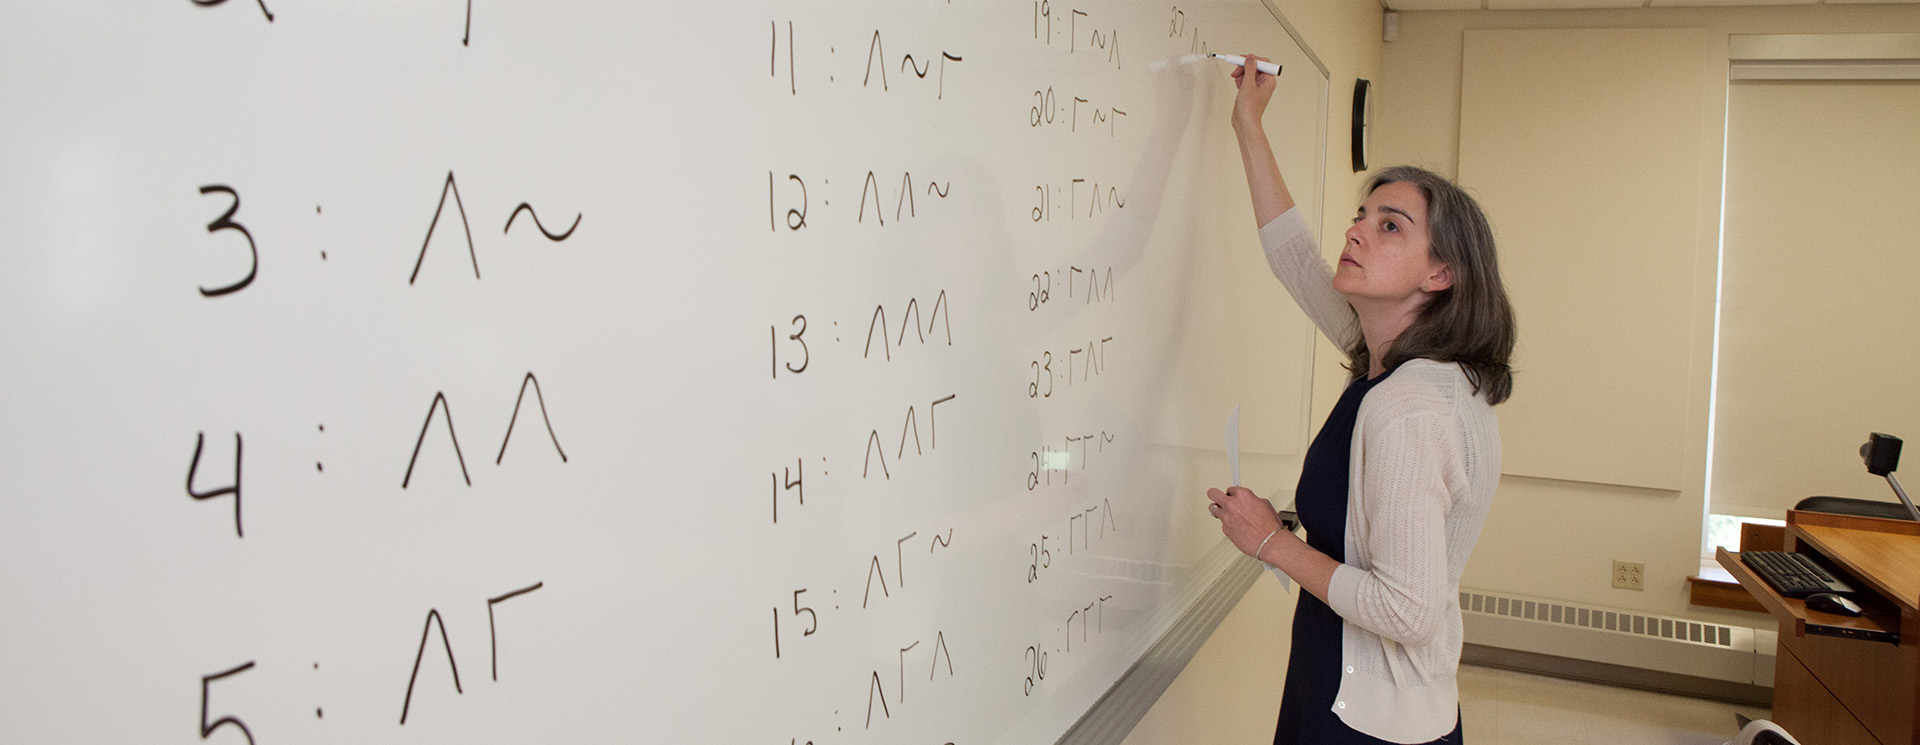 3 : Λ ~
4 : Λ Λ
5 : Λ Γ
11 : Λ ~ Γ
12 : Λ Λ ~
13 : Λ Λ Λ
14 : Λ Λ Γ
15 : Λ Γ ~
: Λ Γ Λ
19 : Γ ~ Λ
20 : Γ ~ Γ
21 : Γ Λ ~
22 : Γ Λ Λ
23 : Γ Λ Γ
24 : Γ Γ ~
25 : Γ Γ Λ
26 : Γ Γ Γ
27 : Λ ~